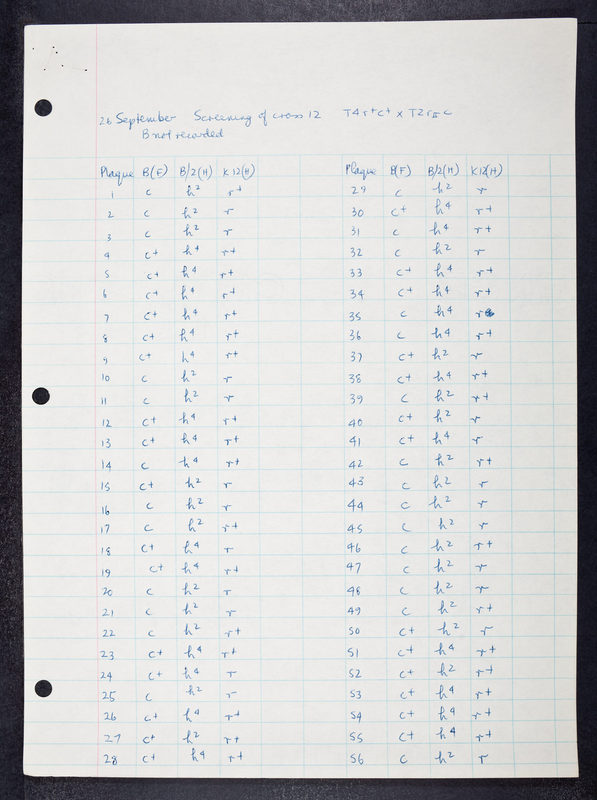 26 September Screening of cross 12 T4r+c+ x T2rIIc
B not recorded
Plaque B(F) B/2(H) K12(H)
1 c h2 r+
2 c h2 r
3 c h2 r
4 c+ h4 r+
5 c+ h4 r+
6 c+ h4 r+
7 c+ h4 r+
8 c+ h4 r+
9 c+ h4 r+
10 c h2 r
11 c h2 r
12 c+ h4 r+
13 c+ h4 r+
14 c h4 r+
15 c+ h2 r
16 c h2 r
17 c h2 r+
18 c+ h4 r
19 c+ h4 r+
20 c h2 r
21 c h2 r
22 c h2 r+
23 c+ h4 r+
24 c+ h4 r
25 c h2 r
26 c+ h4 r+
27 c+ h2 r+
28 c+ h4 r+
Plaque B(F) B/2(H) K12(H)
29 c h2 r
30 c+ h4 r+
31 c h4 r+
32 c h2 r
33 c+ h4 r+
34 c+ h4 r+
35 c h4 r
36 c h4 r+
37 c+ h2 r
38 c+ h4 r+
39 c h2 r+
40 c+ h2 r
41 c+ h4 r
42 c h2 r+
43 c h2 r
44 c h2 r
45 c h2 r
46 c h2 r+
47 c h2 r
48 c h2 r
49 c h2 r+
50 c+ h2 r
51 c+ h4 r+
52 c+ h2 r+
53 c+ h4 r+
54 c+ h4 r+
55 c+ h4 r+
56 c h2 r